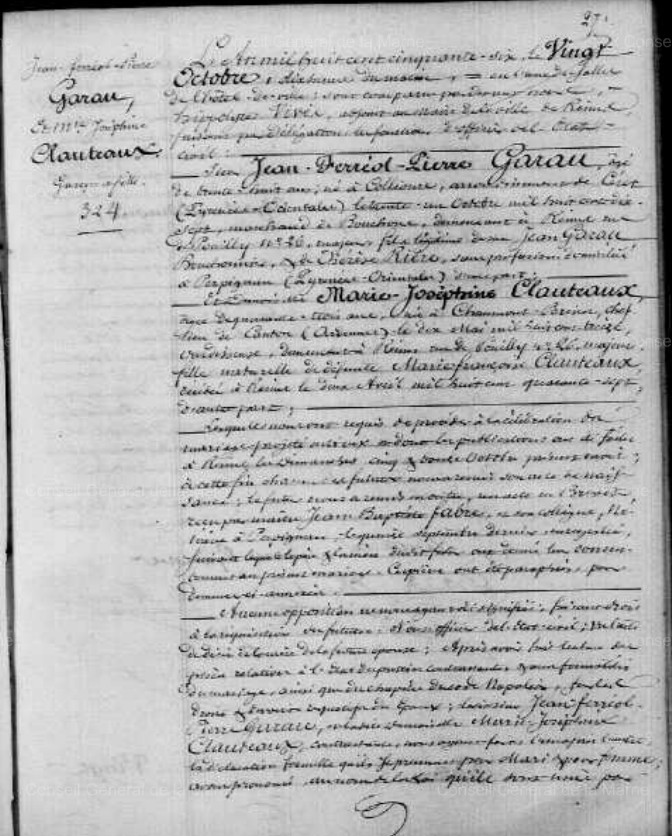 27.
Jean-Ferréol-Pierre
Garau,
et Mlle Joséphine
Clauteaux.
Garçon & fille.
324
L'An mil huit cent cinquante-six, le Vingt
Octobre, dix heures du matin, en l'une des salles
de l'hôtel de ville; sont comparus pardevant nous,
adjoint au Maire de la ville de Reims,
faisant par Délégation les fonctions d'officier de l'État-
civil:
Sieur Jean-Ferréol-Pierre Garau, âgé
de trente-huit ans, né à Collioure, arrondissement de Céret
(Pyrénées-Orientales) le trente-un Octobre mil huit cent dix-
sept, marchand de Bouchons, demeurant à Reims rue
de Pouilly N° 26, majeur, fils légitime de Jean Garau
Bouchonnier, & de Thérèse Rière, sans profession, domiciliés
à Perpignan (Pyrénées-Orientales) d'une part;
Et Demoiselle Marie-Joséphine Clauteaux,
âgée de quarante-trois ans, née à Chaumont-Porcien, chef
lieu de Canton (Ardennes) le dix Mai mil huit cent treize,
demeurant à Reims rue de Pouilly N° 26, majeure,
fille naturelle de défunte Marie-françoise Clauteaux,
décédée à Reims le deux Avril mil huit cent quarante-sept,
d'autre part;
Lesquels nous ont requis de procéder à la célébration du
mariage projeté entr'eux & dont les publications ont été faites
à Reims les Dimanches cinq & douze Octobre présent mois;
à cette fin chacun des futurs nous a remis son acte de nais-
sance; le futur nous a remis en outre, un acte en Brevet,
reçu par maître Jean Baptiste fabre, & son collègue, No-
taires à Perpignan le quinze septembre dernier, enregistré,
suivant lequel le père & la mère du futur ont donné leur consen-
tement au présent mariage. Ces pièces ont été paraphées par
& annexées.
Aucune opposition ne nous ayant été signifiée, faisant droit
à la réquisition des futurs; Nous officier de l'État-civil;
de décès de la mère de la future épouse; Après avoir fait lecture des
pièces relatives à l'état des parties contractantes, & aux formalités
du mariage, ainsi que du chapitre du code Napoléon, sur les
droits & devoirs respectifs des Époux; le sieur Jean-ferréol-
Pierre Garau, & la demoiselle Marie-Joséphine
Clauteaux, contractants, nous ayant fait l'un après l'autre,
la déclaration formelle qu'ils se prennent pour Mari & pour femme;
avons prononcé au nom de la Loi qu'ils sont unis par